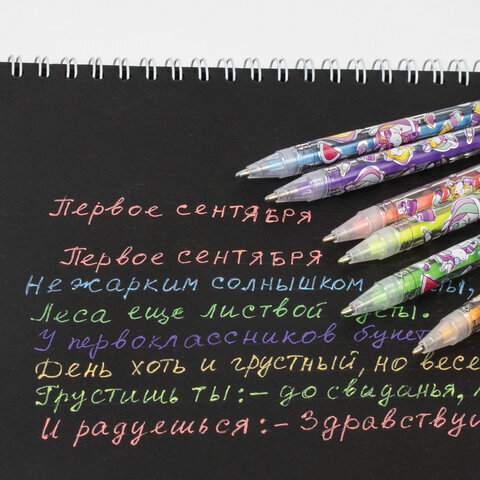 Первое сентября
Первое сентября
Нежарким солнышком ты,
Леса еще листвой ты.
У первоклассников букет
День хоть и грустный, но весе
Грустишь ты:- до свиданья,
И радуешься:- Здравствуй